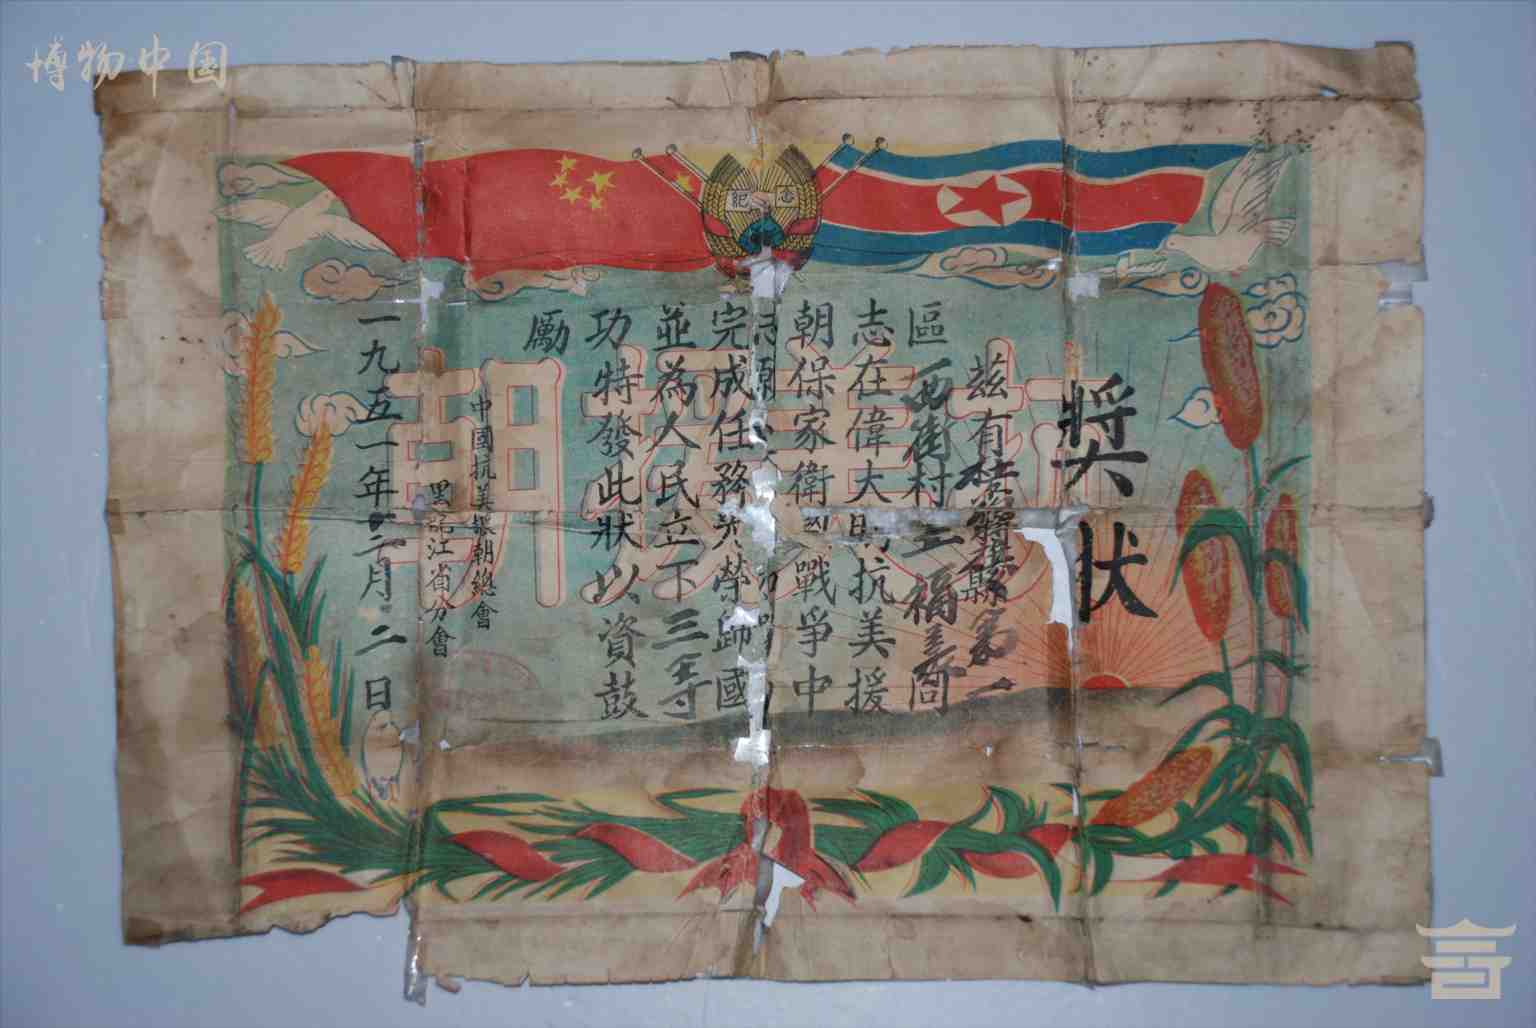 博物中国
紀念
抗美援朝
奬状
兹有縣第一
區西街村王福同
志在偉大的抗美援
朝保家衛國戰爭中
志願
完成任務光榮歸國
並為人民立下三等
功特發此狀以資鼓
勵
中國抗美援朝總會
黑龍江省分會
一九五一年十二月二日